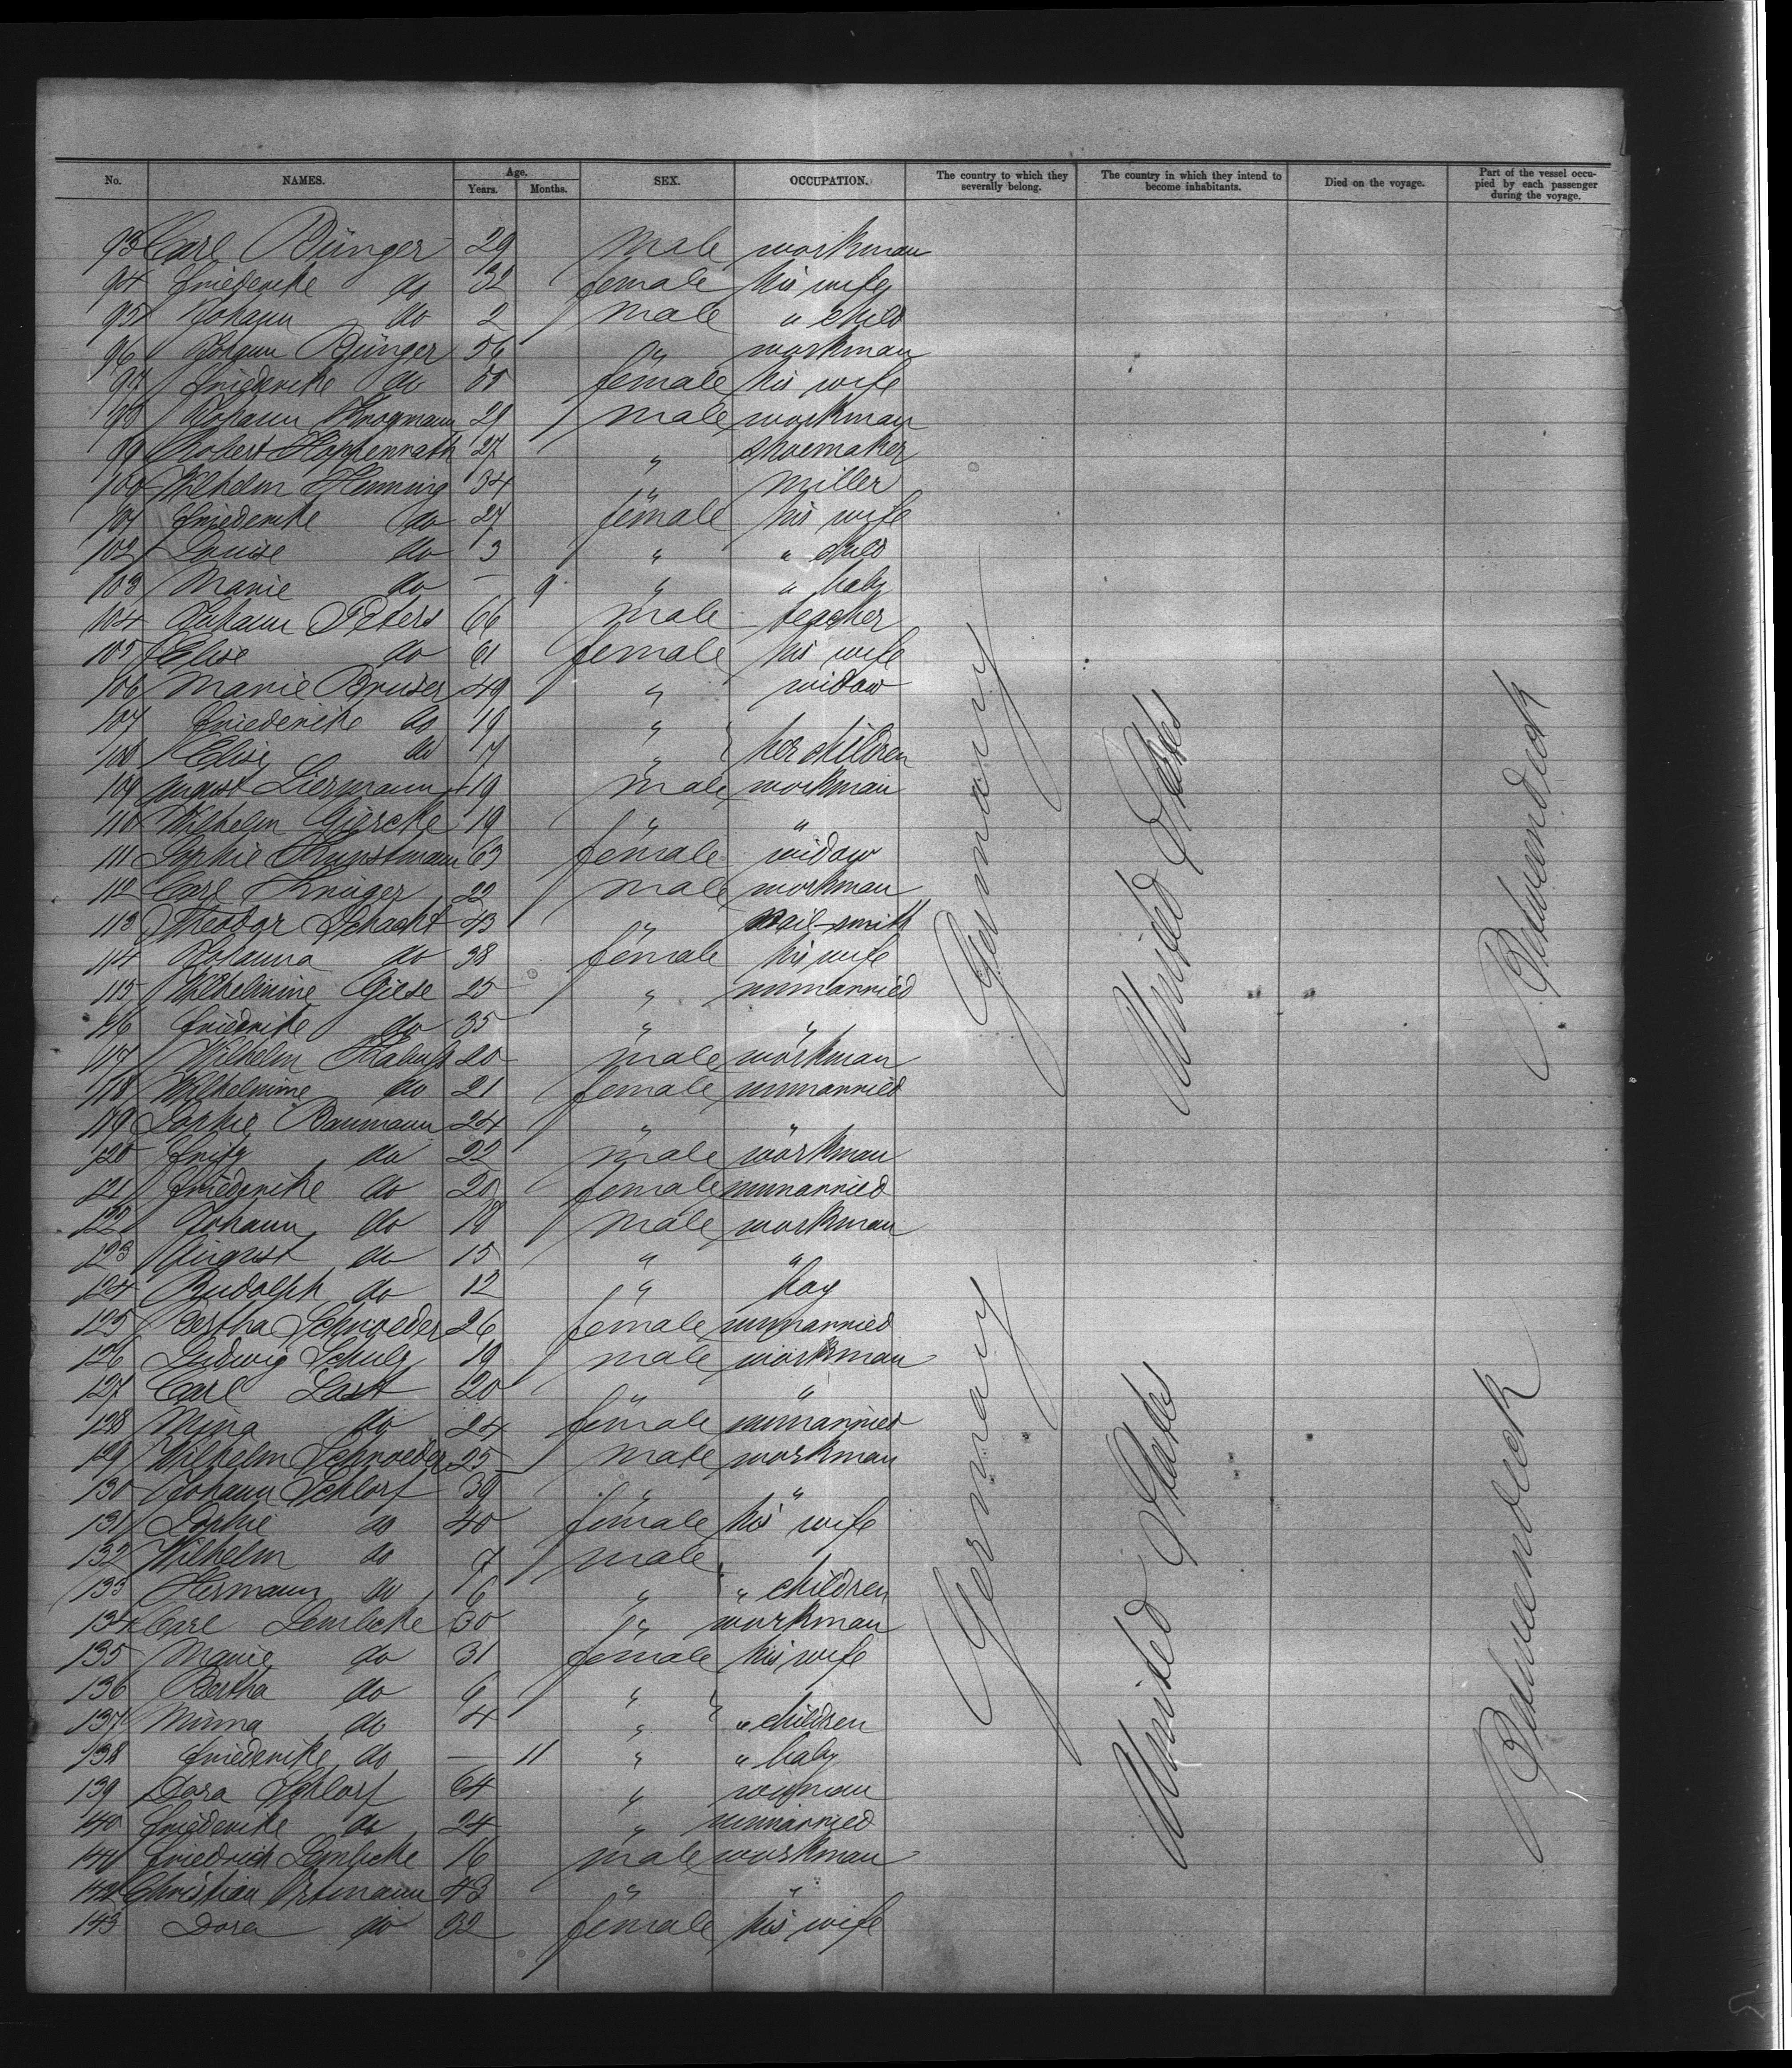 No. NAMES. Age. Years. Months. SEX. OCCUPATION. The country to which they severally belong. The country in which they intend to become inhabitants. Died on the voyage. Part of the vessel occupied by each passenger during the voyage.
93 Carl Bünger 29 male workman
94 Friederike do 32 female his wife
95 Johann do 2 male " child
96 Johann Bünger 56 " workman
97 Friederike do 55 female his wife
98 Johann Krogmann 29 male workman
99 Robert Hoppenrath 27 " shoemaker
100 Wilhelm Henning 34 " miller
101 Friederike do 27 female his wife
102 Louise do 3 " " child
103 Marie do — 9 " " baby
104 Johann Peters 66 male teacher
105 Elise do 61 female his wife
106 Marie Bruser 49 " widow
107 Friederike do 19 "
108 Elise do 17 " her children
109 August Liermann 19 male workman
110 Wilhelm Giercke 19 " "
111 Sophie Kunstmann 63 female widow
112 Carl Krüger 22 male workman
113 Theodor Schacht 43 " nail-smith
114 Johanna do 38 female his wife
115 Wilhelmine Giese 25 " unmarried
116 Friedrike do 35 " "
117 Wilhelm 20 male workman
118 Wilhelmine do 21 female unmarried
119 Sophie Baumann 24 " "
120 Fritz do 22 male workman
121 Friederike do 20 female unmarried
122 Johann do 18 male workman
123 August do 15 " "
124 Rudolph do 12 " boy
125 Bertha Schroeder 26 female unmarried
126 Ludwig Schulz 19 male workman
127 Carl Last 20 " "
128 Mina do 24 female unmarried
129 Wilhelm Schroeder 25 male workman
130 Johann Schlorf 39 " "
131 Sophie do 40 female his wife
132 Wilhelm do 7 male
133 Hermann do 6 " " children
134 Carl Lembcke 30 " workman
135 Marie do 31 female his wife
136 Bertha do 6 "
137 Minna do 4 " " children
138 Friederike do — 11 " " baby
139 Dora Schlorf 64 " woman
140 Friederike do 24 " unmarried
141 Friedrich Lembcke 16 male workman
142 Christian Ortmann 43 " "
143 Dora do 32 female his wife
Germany
United States
Betweendeck
Germany
United States
Betweendeck